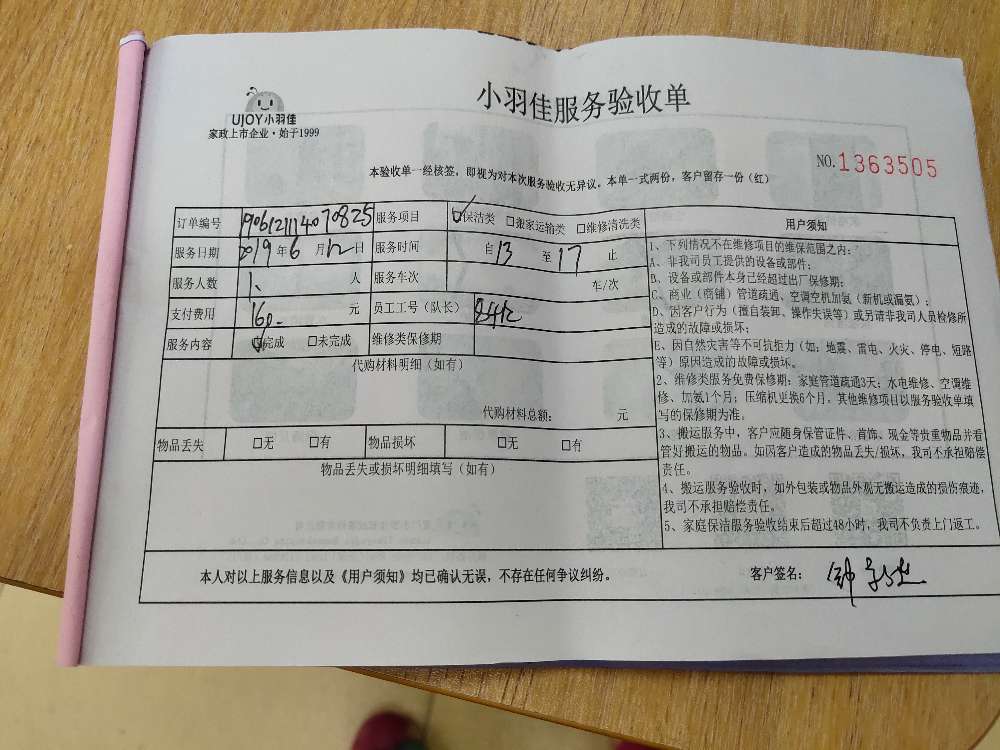 小羽佳服务验收单
UJOY小羽佳
家政上市企业·始于1999
NO.1363505
本验收单一经核签，即视为对本次服务验收无异议，本单一式两份，客户留存一份（红）
订单编号 服务项目 保洁类 搬家运输类 维修清洗类
服务日期 2019年6月12日 服务时间 自13至17止
服务人数 1 人 服务车次 车/次
支付费用 160 元 员工工号（队长）
服务内容 完成 未完成 维修类保修期
代购材料明细（如有）
代购材料总额： 元
物品丢失 无 有 物品损坏 无 有
物品丢失或损坏明细填写（如有）
用户须知
1、下列情况不在维修项目的维保范围之内：
A、非我司员工提供的设备或部件；
B、设备或部件本身已经超过出厂保修期；
C、商业（商铺）管道疏通、空调空机加氨（新机或漏氨）；
D、因客户行为（擅自装卸、操作失误等）或另请非我司人员检修所
造成的故障或损坏；
E、因自然灾害等不可抗拒力（如：地震、雷电、火灾、停电、短路
等）原因造成的故障或损坏。
2、维修类服务免费保修期：家庭管道疏通3天；水电维修、空调维
修、加氨1个月；压缩机更换6个月，其他维修项目以服务验收单填
写的保修期为准。
3、搬运服务中，客户应随身保管证件、首饰、现金等贵重物品并看
管好搬运的物品。如因客户造成的物品丢失/损坏，我司不承担赔偿
责任。
4、搬运服务验收时，如外包装或物品外观无搬运造成的损伤痕迹，
我司不承担赔偿责任。
5、家庭保洁服务验收结束后超过48小时，我司不负责上门返工。
本人对以上服务信息以及《用户须知》均已确认无误，不存在任何争议纠纷。 客户签名：